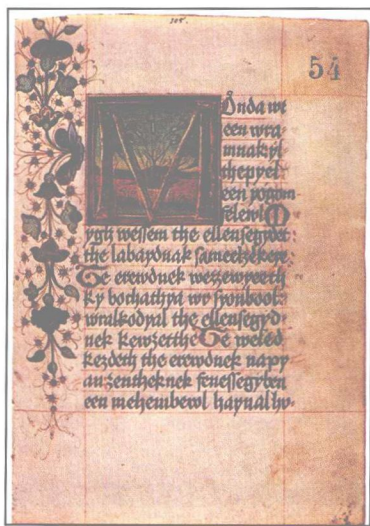 54
MOnda wr
een wra-
mnak yl
the
een yogom
felewl M
ygh wessem the ellensegydet
the labaydnak
Te erewdnek
ky bochathya wr Syonbool
wralkodyal the ellensegyd-
nek kewzetthe Te weled
kezdeth the erewdnek napy
an zentheknek fenessegyben
een mehembewl haynal hy-